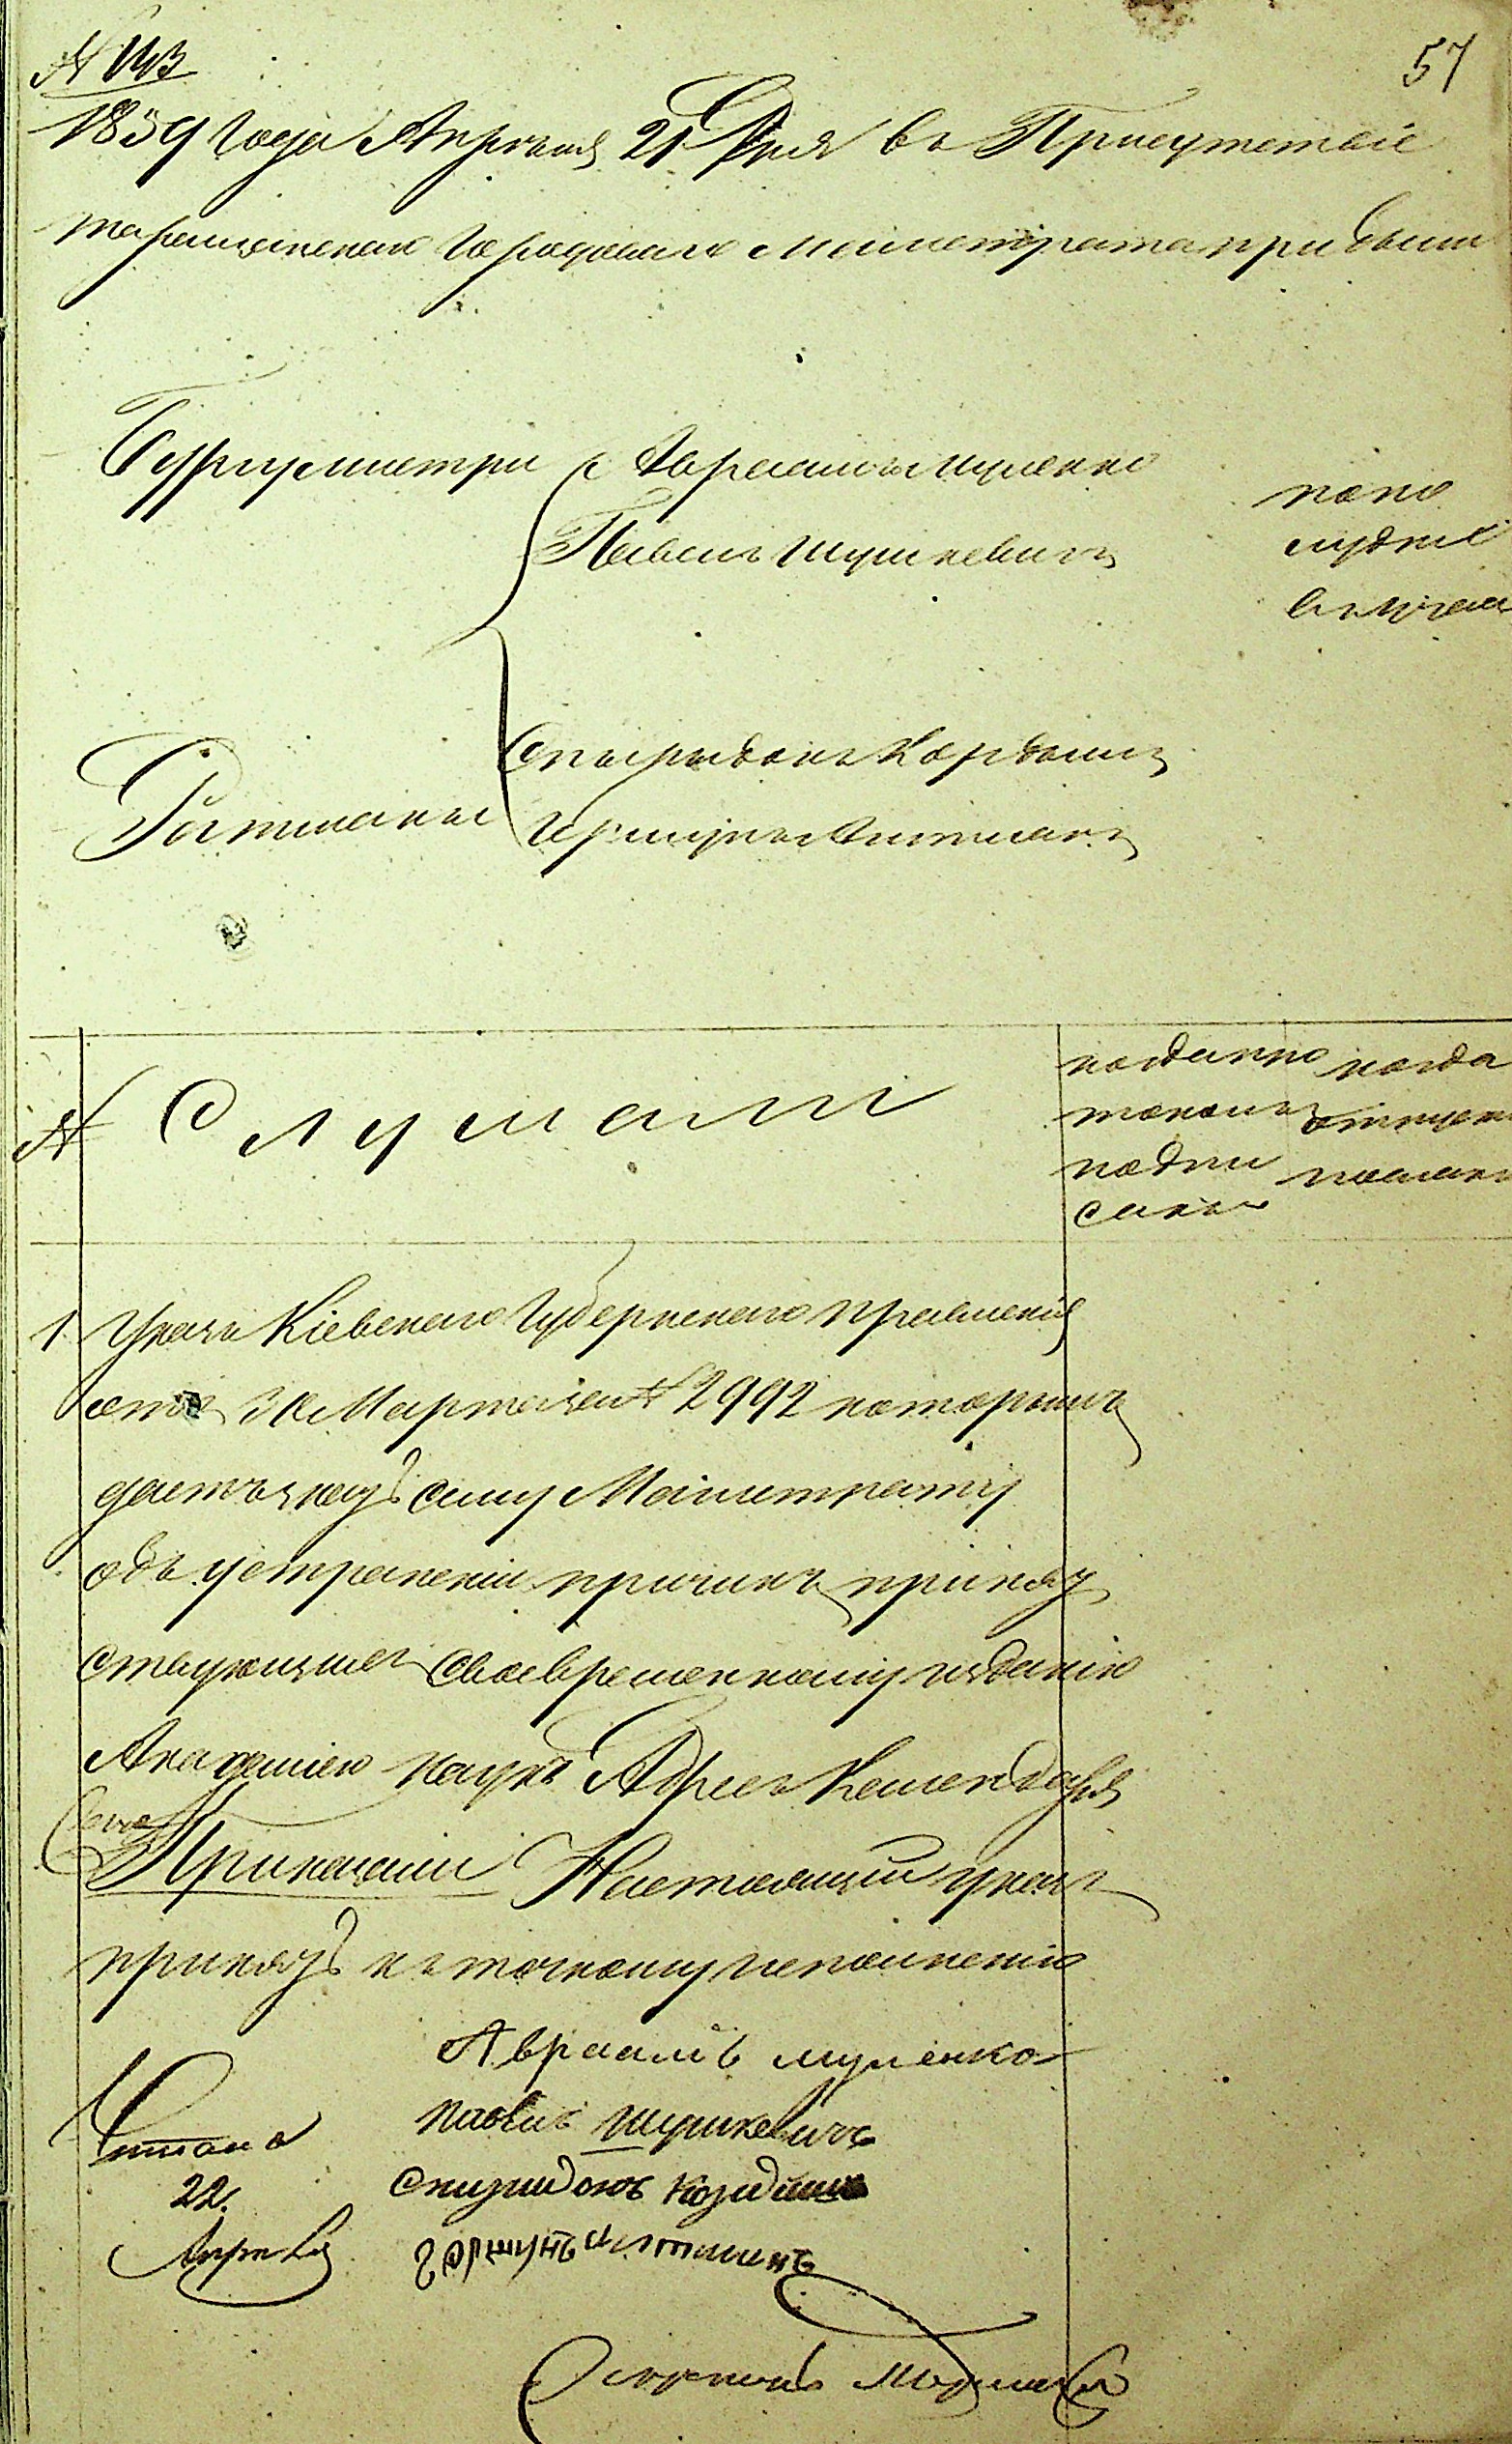 57
1839 года Апреля 21 Дня въ Присутствіе
таращанскаго Городоваго Магистрата прибыли
Бургумистри Авраамъ Шуленко
Павелъ Шушкевичъ
попо
лудне
въ
Ратманы
Спыридонъ Кордышъ
Гершунъ Литманъ
№ Слушали
когда про
токолъ
подпи
санъ
когда
отпуск
посланъ
1. Указъ Кіевскаго Губернскаго Правленія
отъ 30 Марта за № 2992 которымъ
даетъ указъ сему Магистрату
объ устраненіи причинъ препят
ствующихъ своевременному изданію
Академіею Наукъ Адресъ Календаря
Приказали Настоящій указъ
принять къ точному исполненію
Авраамъ шуленко
павелъ шушкевичъ
спиридонъ кордишъ
гершунъ литманъ
Читано
22.
Апреля
Секретарь